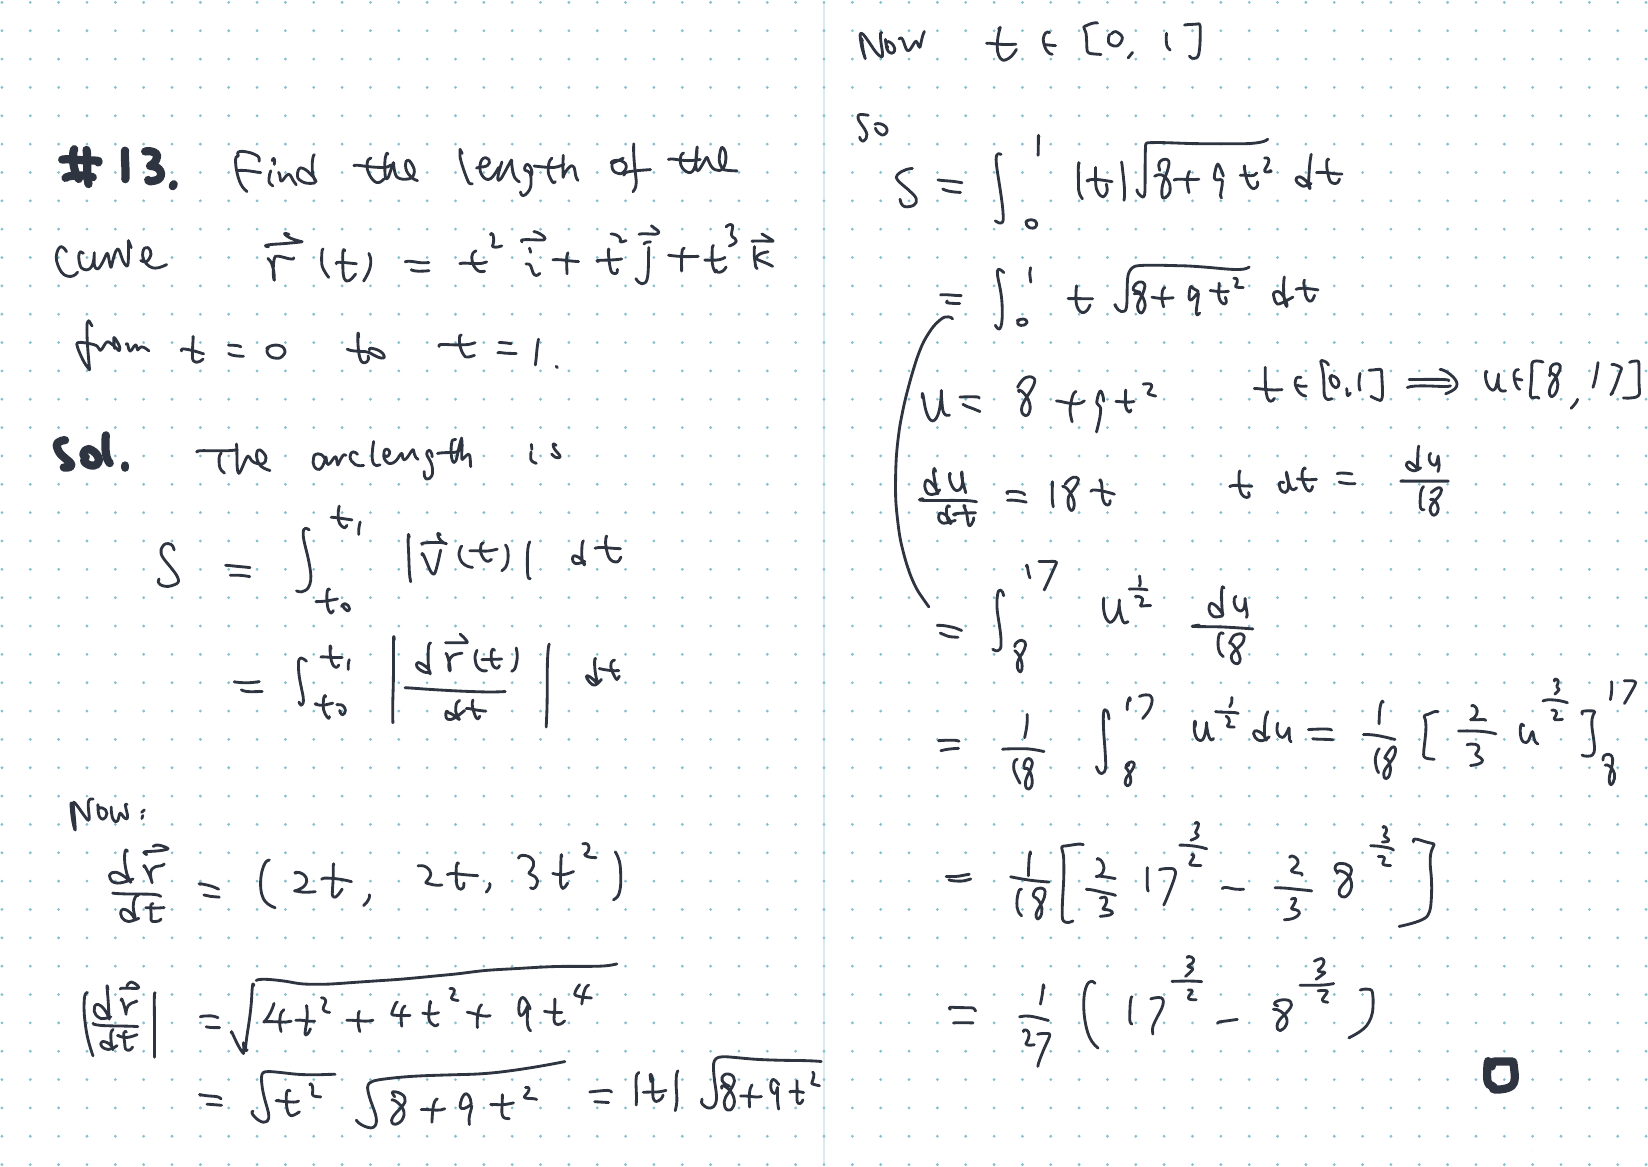 #13. Find the length of the
curve $\vec{r}(t) = t^2 \vec{i} + t^2 \vec{j} + t^3 \vec{k}$
from t = 0 to t = 1.
Sol. The arclength is
$S = \int_{t_0}^{t_1} |\vec{v}(t)| \, dt$
$= \int_{t_0}^{t_1} \left| \frac{d\vec{r}(t)}{dt} \right| dt$
Now:
$\frac{d\vec{r}}{dt} = (2t, 2t, 3t^2)$
$\left| \frac{d\vec{r}}{dt} \right| = \sqrt{4t^2 + 4t^2 + 9t^4}$
$= \sqrt{t^2} \sqrt{8+9t^2} = |t| \sqrt{8+9t^2}$
Now $t \in [0, 1]$
so
$S = \int_0^1 |t| \sqrt{8+9t^2} \, dt$
$= \int_0^1 t \sqrt{8+9t^2} \, dt$
$u = 8+9t^2 \quad t \in [0,1] \Longrightarrow u \in [8, 17]$
$\frac{du}{dt} = 18t \quad t \, dt = \frac{du}{18}$
$= \int_8^{17} u^{\frac{1}{2}} \frac{du}{18}$
$= \frac{1}{18} \int_8^{17} u^{\frac{1}{2}} du = \frac{1}{18} \left[ \frac{2}{3} u^{\frac{3}{2}} \right]_8^{17}$
$= \frac{1}{18} \left[ \frac{2}{3} 17^{\frac{3}{2}} - \frac{2}{3} 8^{\frac{3}{2}} \right]$
$= \frac{1}{27} \left( 17^{\frac{3}{2}} - 8^{\frac{3}{2}} \right)$